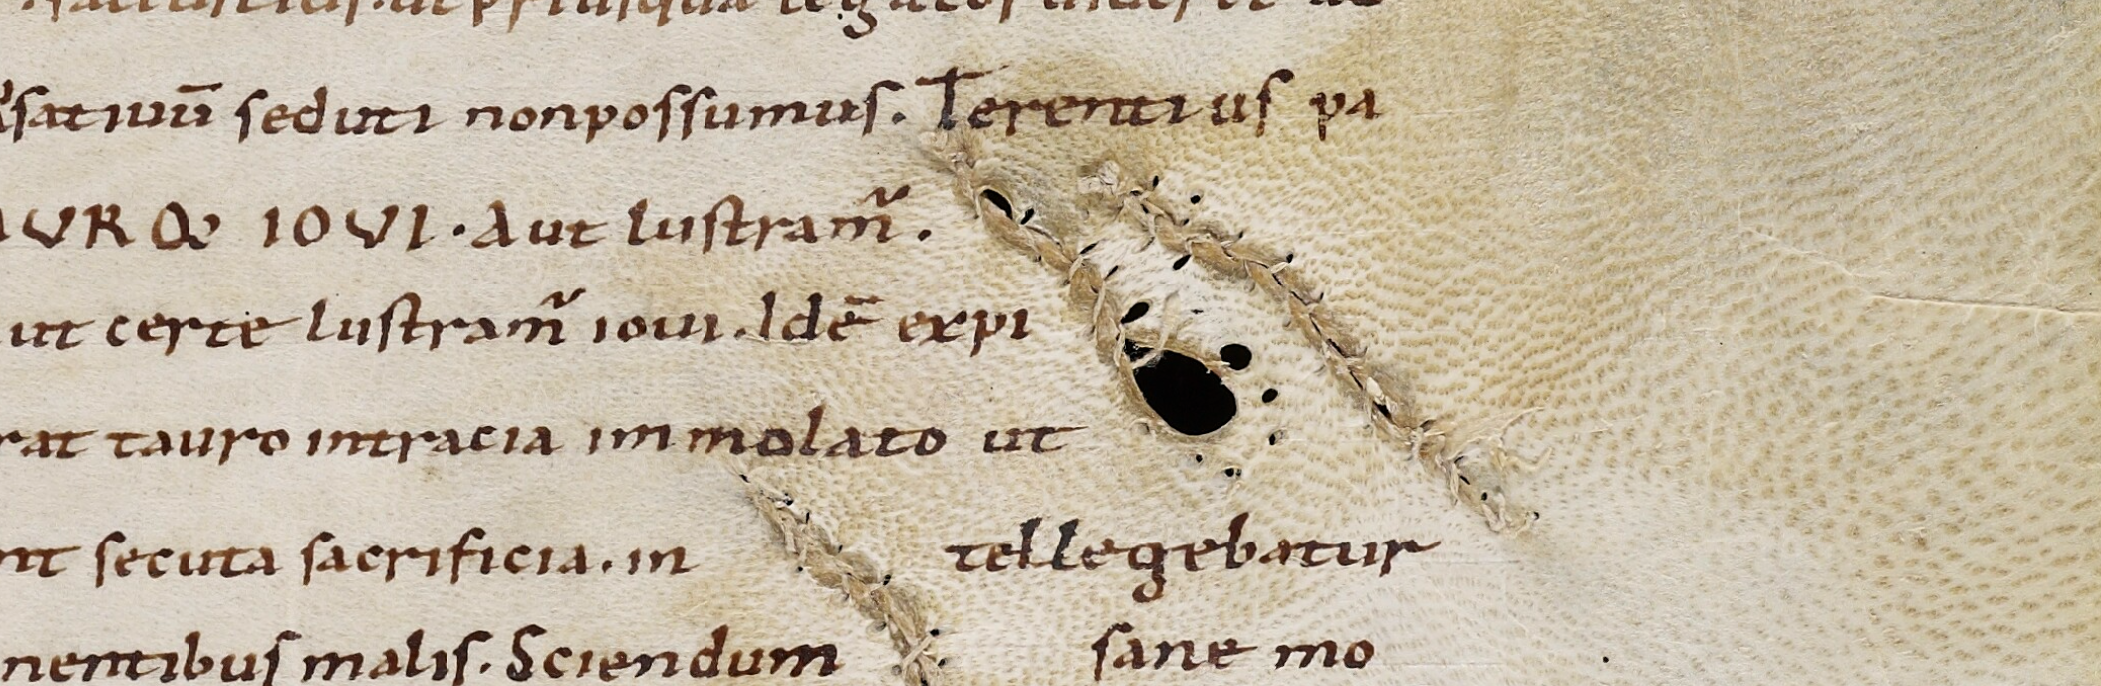 ut priusqua legatos
satiuū seduci nonpossumus. Terentius pa
AURO& IOVI. Aut lustram̃.
ut certe lustram̃ ioui. Idē expi
rat tauro intracia immolato ut
nt secuta sacrificia. in tellegebatur
nentibus malis. Sciendum sane mo